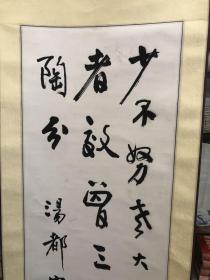 少不努力老大
者敌曾三
陶分
湯都